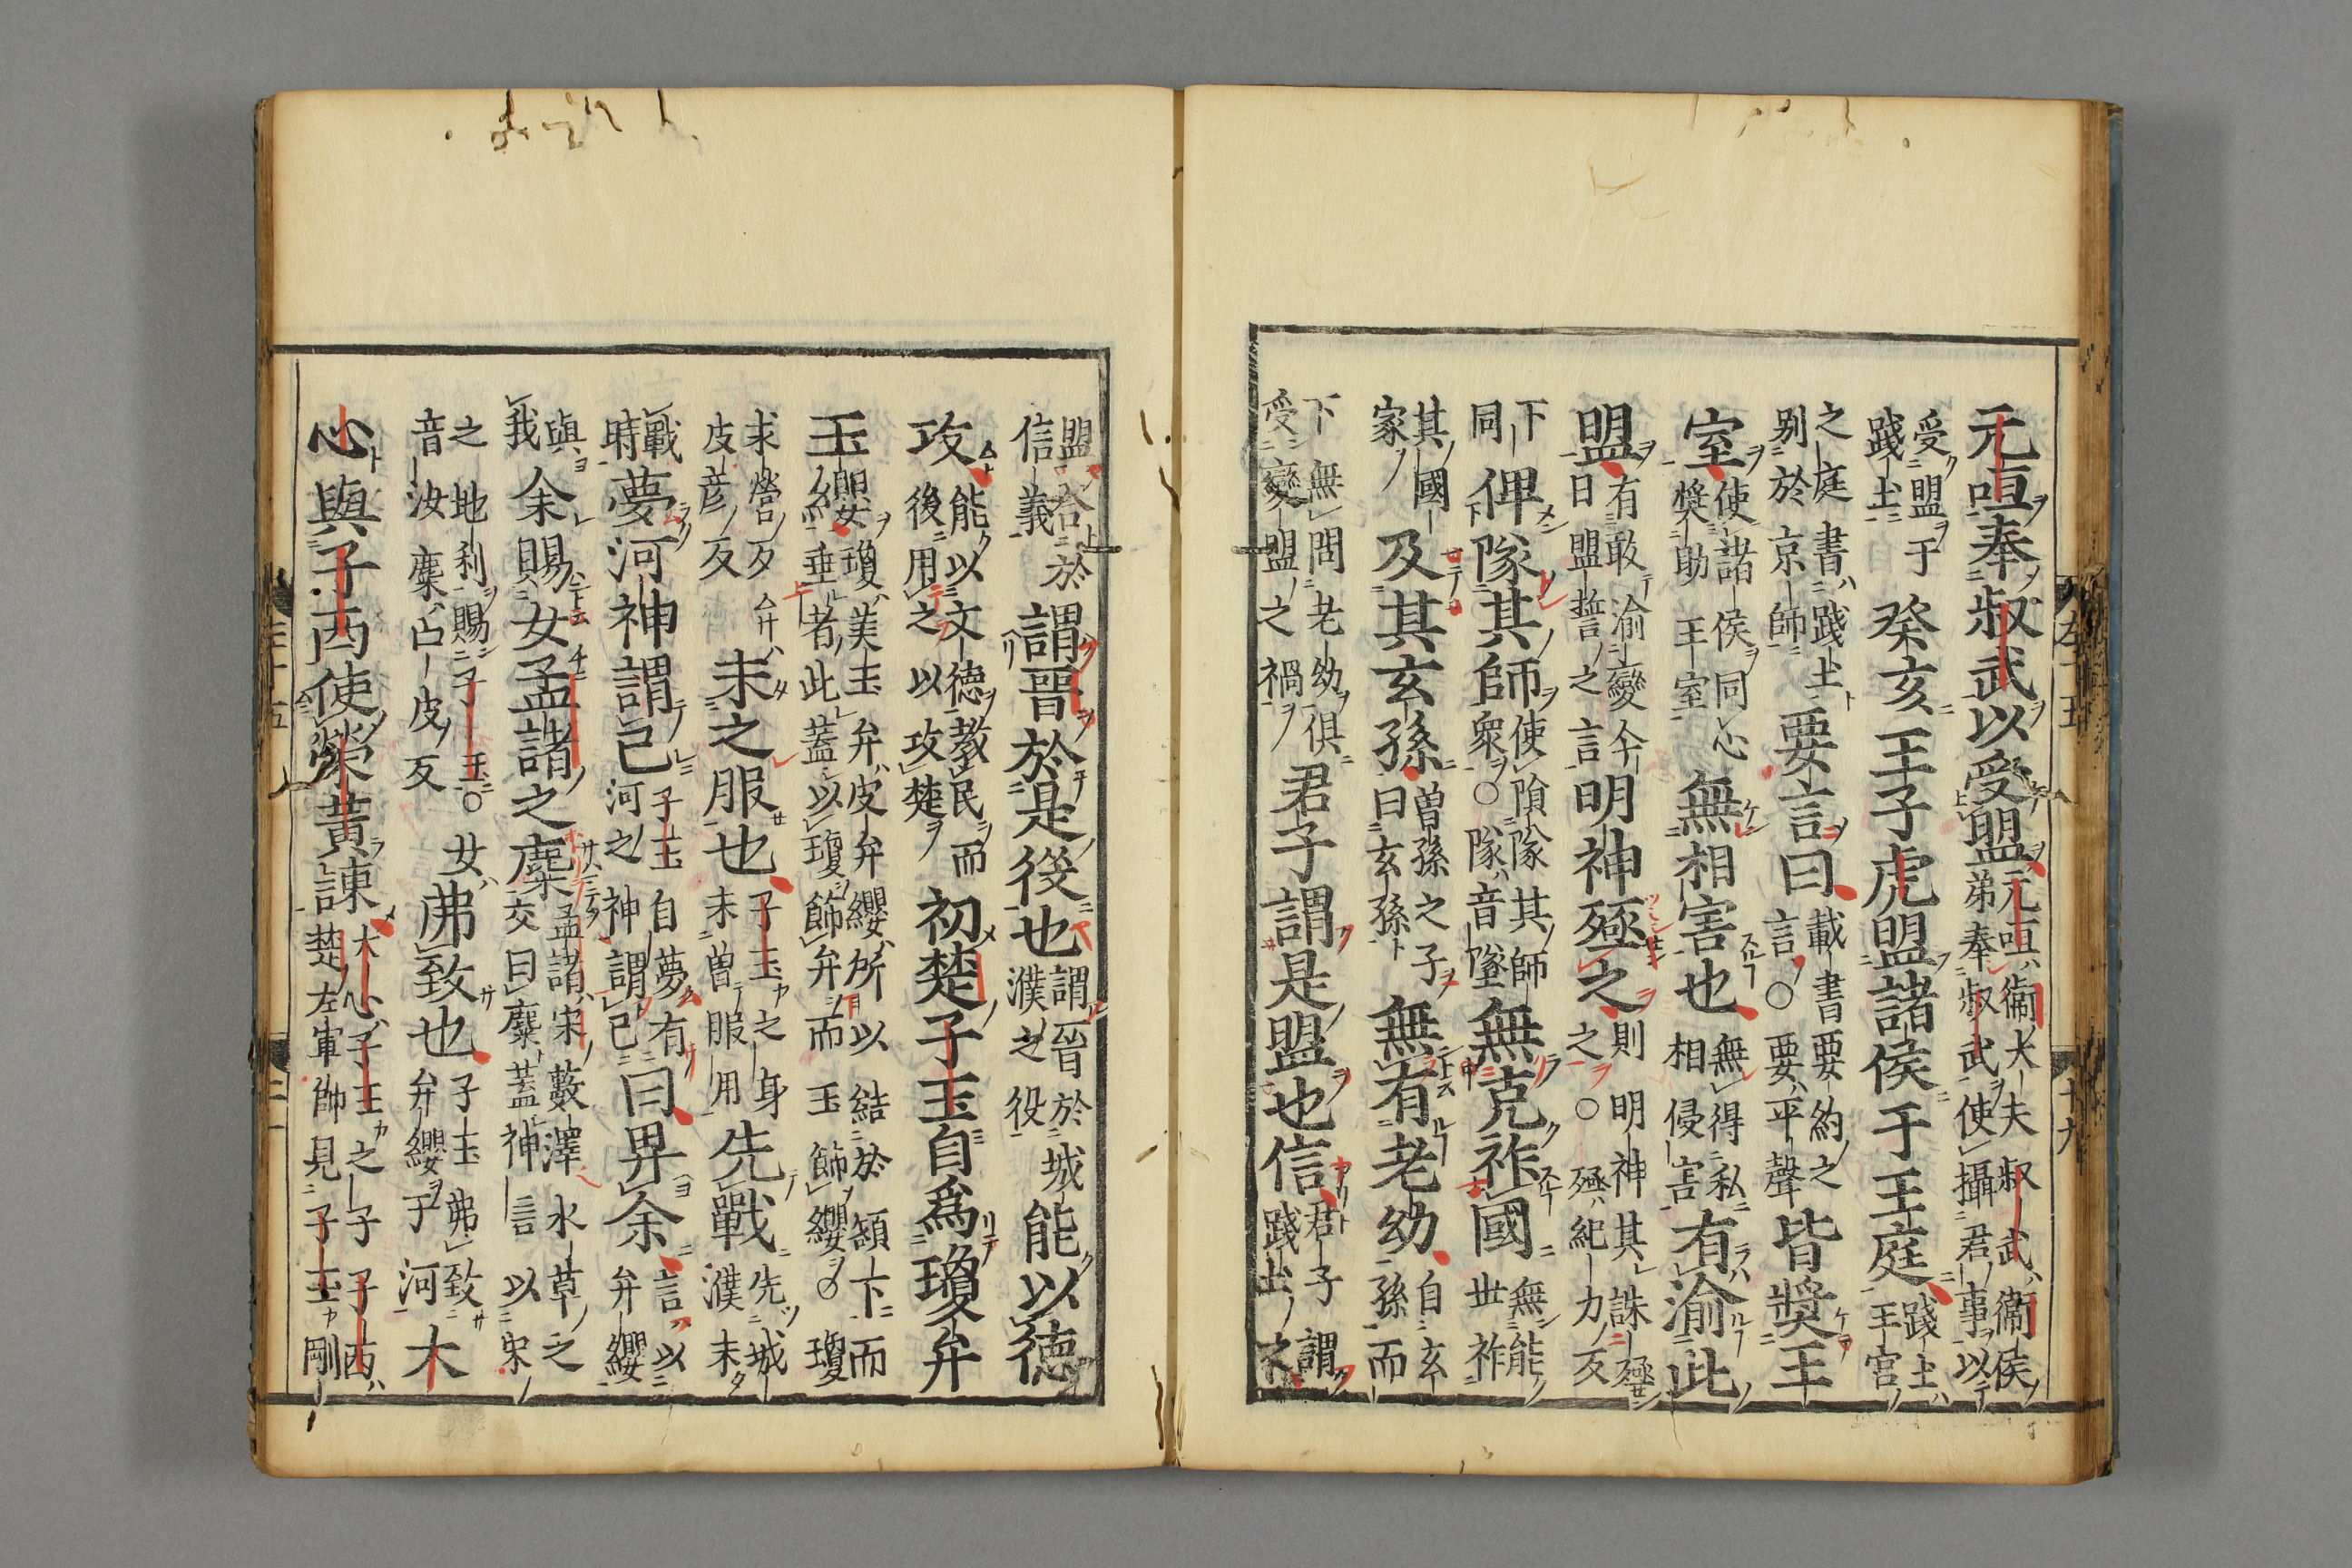 元咺奉叔武以受盟元咺衞大夫叔武衞侯弟奉叔武使攝君事以
受盟于踐土癸亥王子虎盟諸侯于王庭踐土王宮
之庭書踐土別於京師要言曰載書要約之言○要平聲皆奬王
室使諸侯同心奬助王室無相害也無得私相侵害有渝此
盟有敢渝變今日盟誓之言明神殛之則明神其誅殛之○殛紀力反
下同俾隊其師使隕隊其師衆○隊音墜無克祚國無能世祚
其國家及其玄孫曾孫之子曰玄孫無有老幼自玄孫而
下無問老幼俱受變盟之禍君子謂是盟也信君子謂踐土之
盟合於信義謂晉於是役也謂晉於城濮之役能以德
攻能以文德教民而後用之以攻楚初楚子玉自爲瓊弁
玉纓瓊美玉弁皮弁纓所以結於頷下而垂者此蓋以瓊飾弁而玉飾纓○瓊
求營反弁皮彦反未之服也子玉之身未曾服用先戰先城濮未
戰時夢河神謂己子玉自夢有河之神謂己曰畀余言以弁纓
與我余賜女孟諸之麋孟諸宋藪澤水草之交曰麋蓋神言以宋
之地利賜子玉○女音汝麋亡皮反弗致也子玉弗致弁纓于河大
心與子西使榮黃諫大心子玉之子子西楚左軍帥見子玉剛